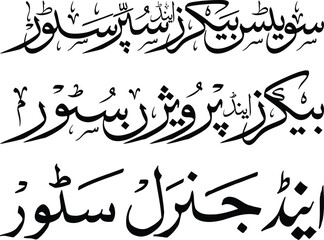 سویٹس بیکرز اینڈ سپر سٹور
بیکرز اینڈ پرویژن سٹور
اینڈ جنرل سٹور